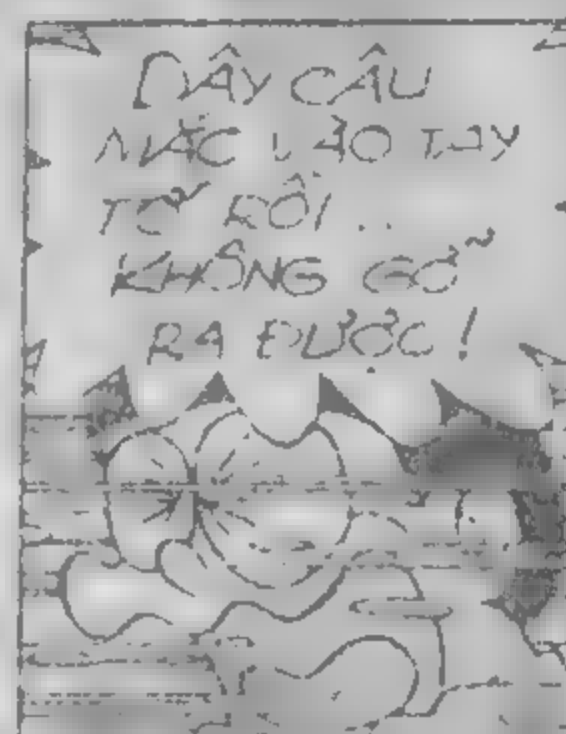 DÂY CÂU
MẮC VÀO TAY
TỚ RỒI...
KHÔNG GỠ
RA ĐƯỢC!